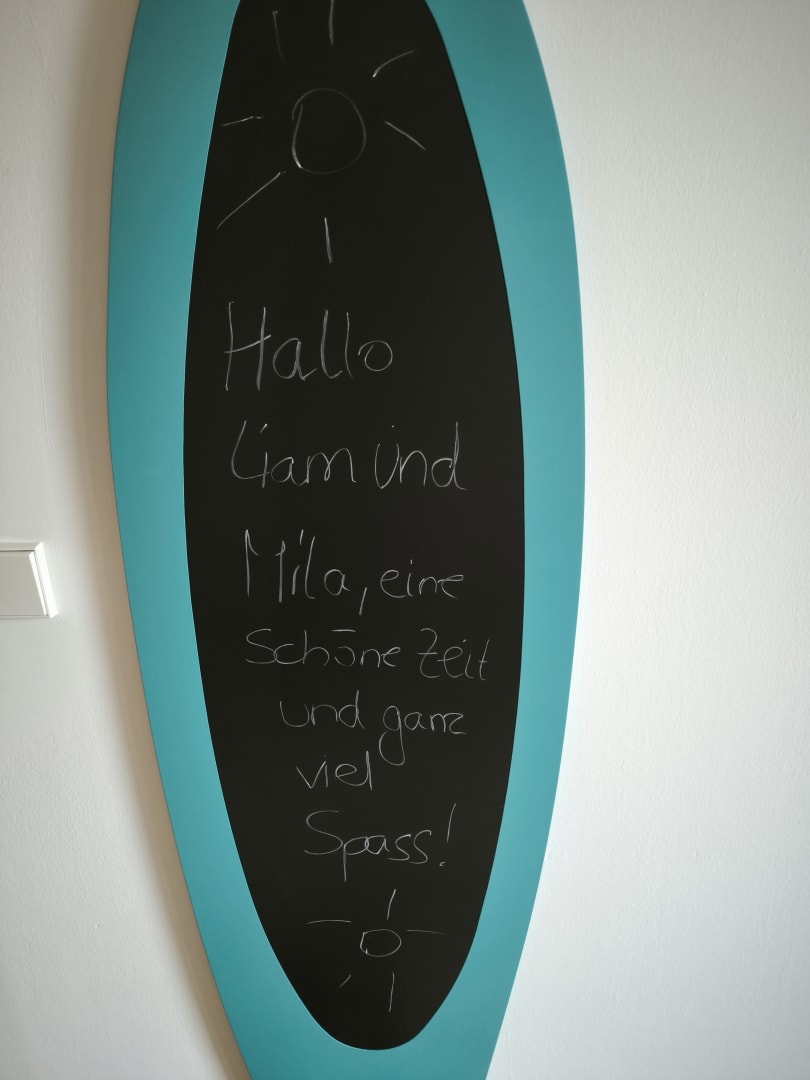 Hallo
Liam und
Mila, eine
Schöne Zeit
und ganz
viel
Spass!